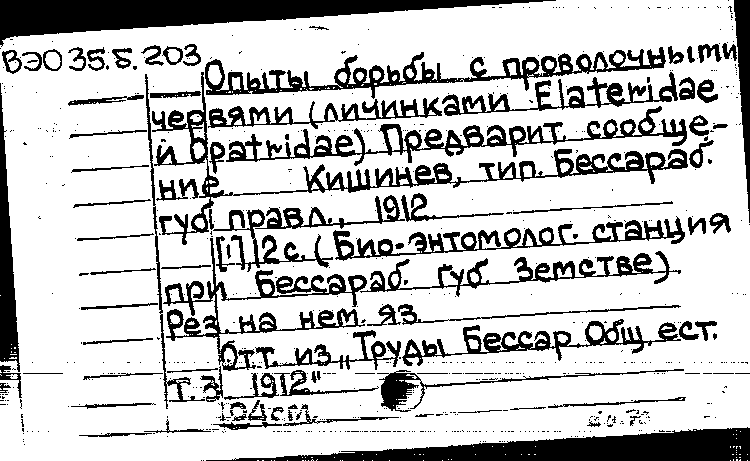 ВЭО 35.5.203
Опыты борьбы с проволочными
червями (личинками Elateridae
и Opatridae). Предварит. сообще-
ние. Кишинев, тип. Бессараб.
губ. правл., 1912.
[1], 12 с. (Био-энтомолог. станция
при Бессараб. губ. Земстве).
Рез. на нем. яз.
Отт. из „Труды Бессар. Общ. ест.
т. 3 1912"